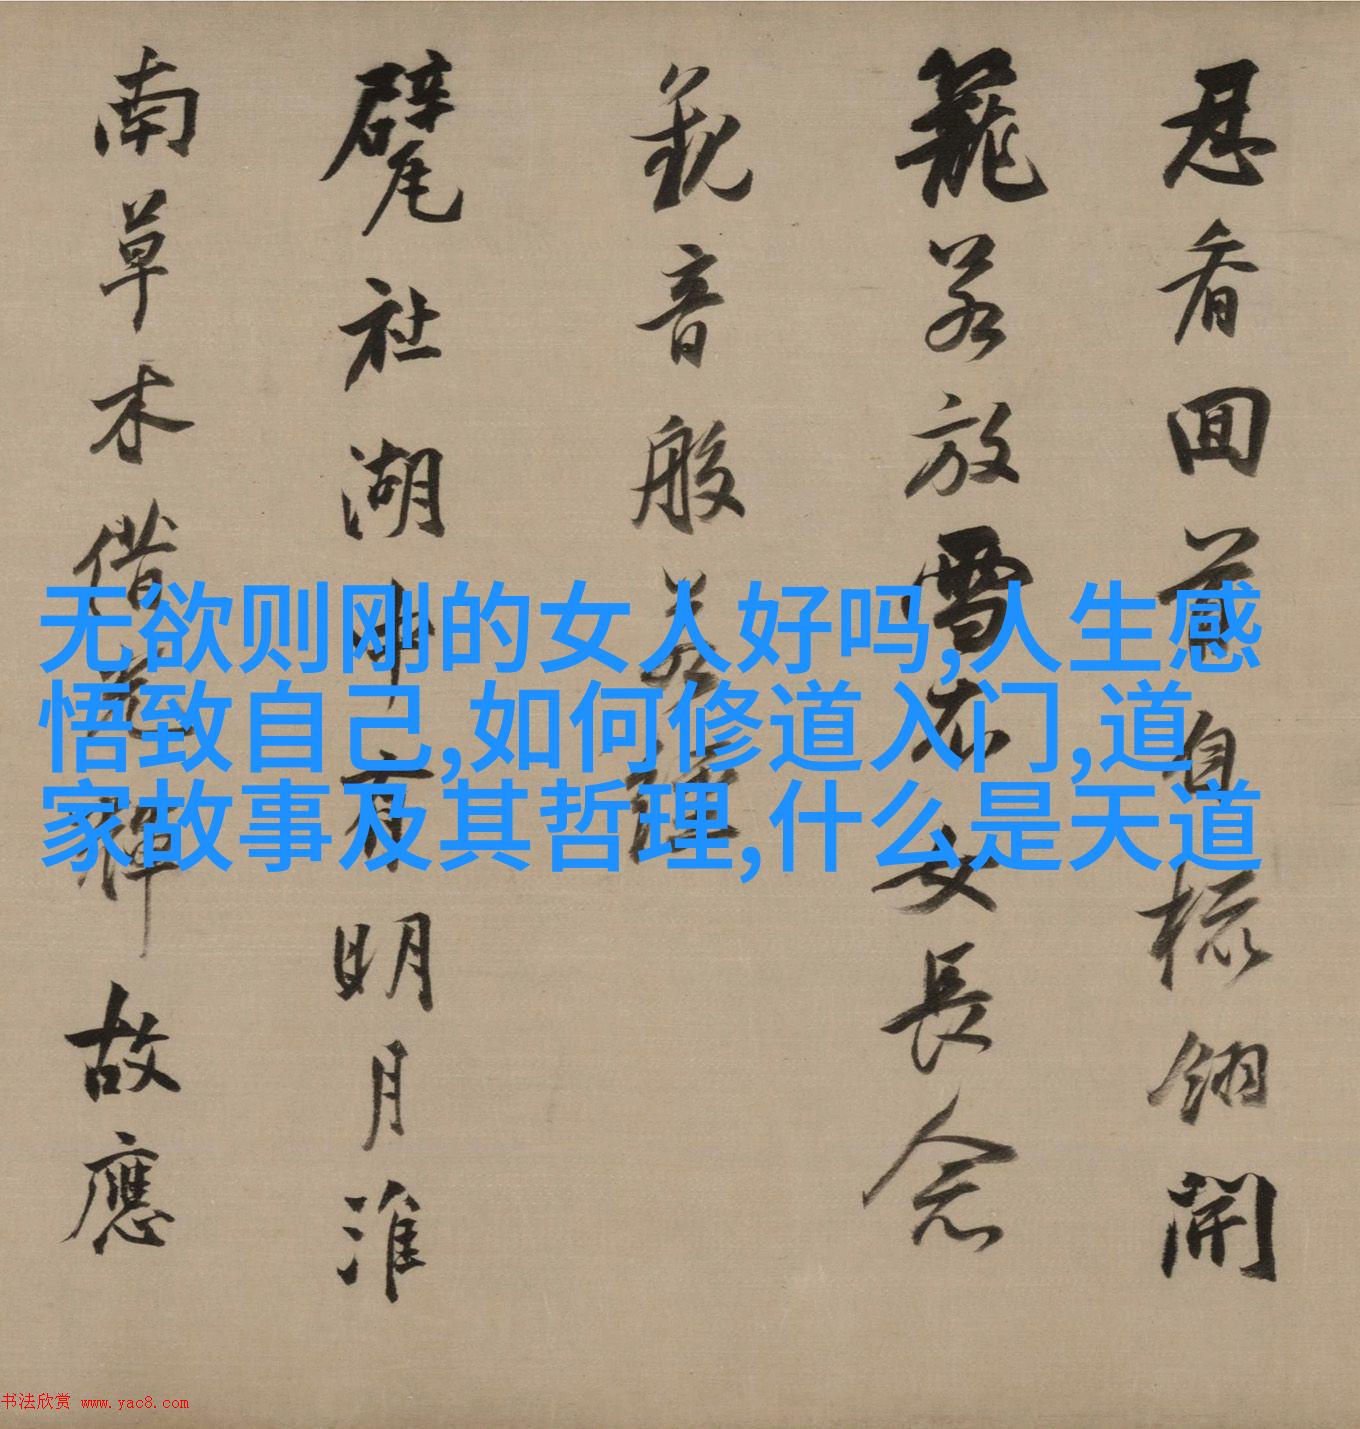 忍看回首自梳翎開
籠若放雪衣女長念
觀音般若經
甓社湖中有明月淮
南草木借光輝故應
无欲则刚的女人好吗,人生感
悟致自己,如何修道入门,道
家故事及其哲理,什么是天道
书法欣赏 www.yac8.com